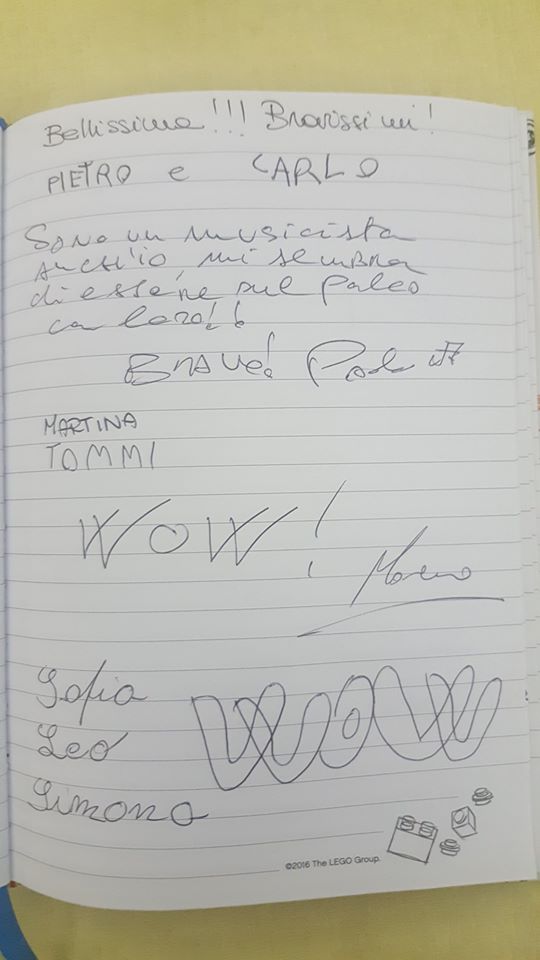 Bellissimo!!! Bravissimi!
PIETRO e CARLO
Sono un musicista
ANCH'IO, mi seMBRA
di essere sul palco
con loro!!
BRAVE!
MARTINA
TOMMI
WOW!
Moreno
Sofia
WOW
Leo
Simona
©2016 The LEGO Group.